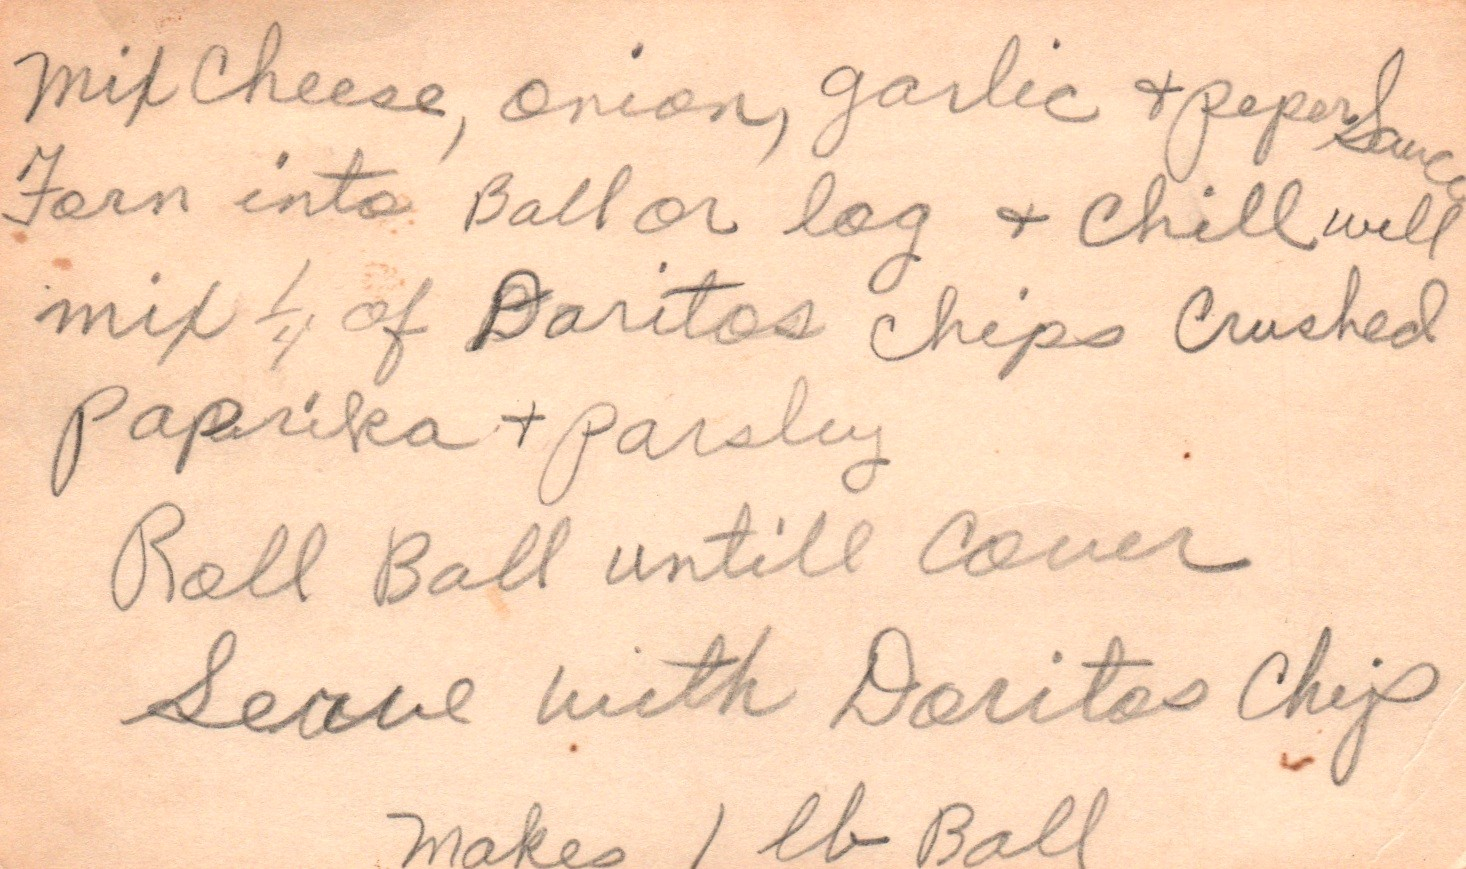 Mix Cheese, onion, garlic + peper Sauce
Forn into Ball or log + Chill well
mix 1/4 of Doritos chips Crushed
Paprika + parsley
Roll Ball untill Cover
Serve with Doritos Chip
Makes 1 lb Ball